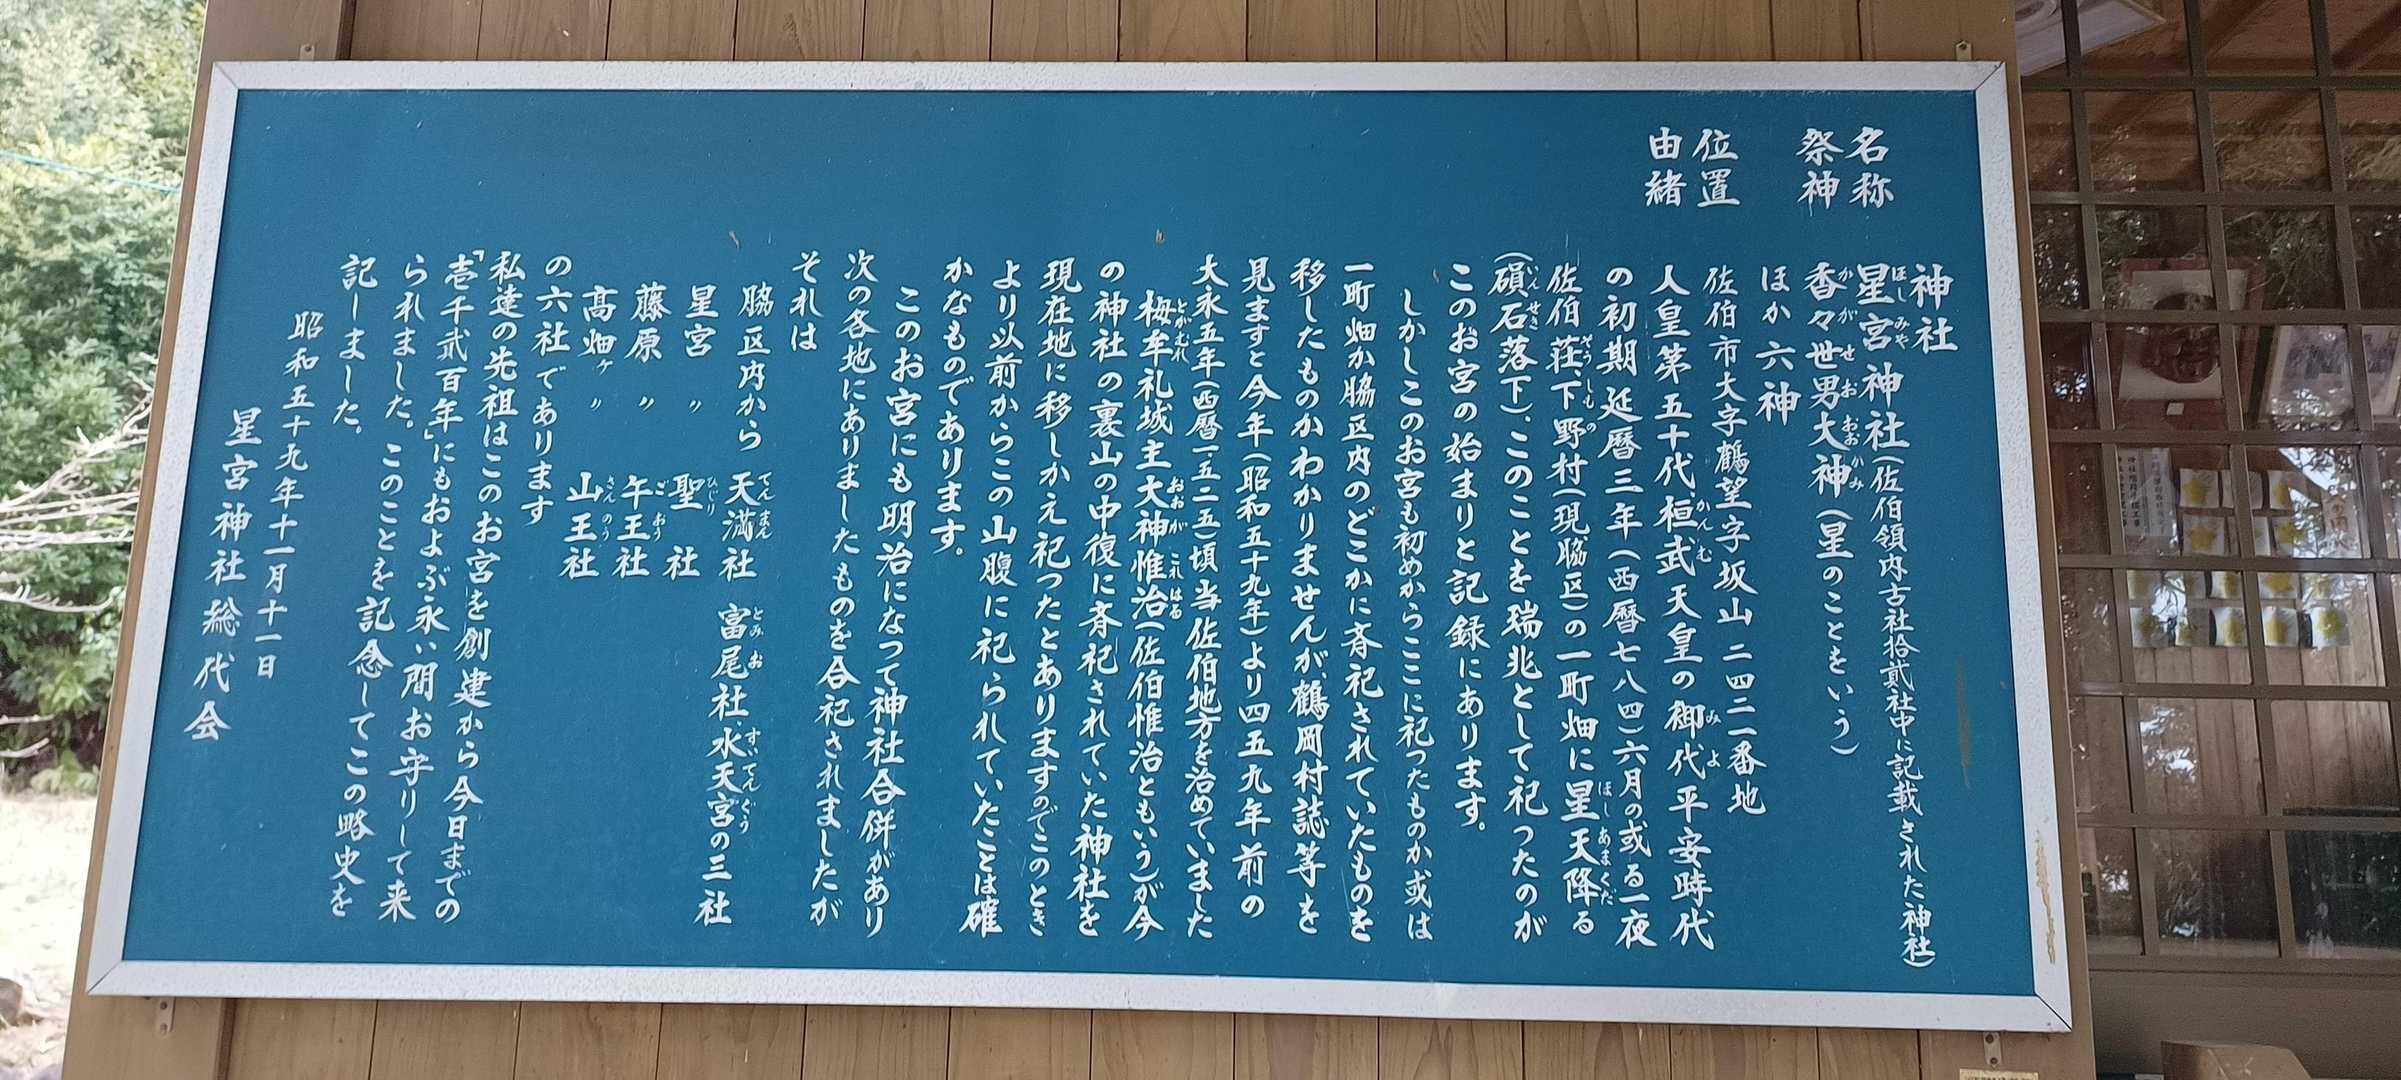 神社
名称 星宮神社(佐伯領内古社拾貳社中に記載された神社)
祭神 香々世男大神(星のことをいう)
ほか六神
位置 佐伯市大字鶴望字坂山二四二一番地
由緒 人皇第五十代、桓武天皇の御代平安時代
の初期延暦三年(西暦七八四)六月の或る一夜
佐伯荘、下野村(現、脇区)の一町畑に星天降る
(磒石落下)、このことを瑞兆として祀つたのが
このお宮の始まりと記録にあります。
しかしこのお宮も初めからここに祀つたものか或は
一町畑か脇区内のどこかに斉祀されていたものを
移したものかわかりませんが、鶴岡村誌等を
見ますと今年(昭和五十九年)より四五九年前の
大永五年(西暦一五二五)頃当佐伯地方を治めていました
栂牟礼城主大神惟治(佐伯惟治ともいう)が今
の神社の裏山の中復に斉祀されていた神社を
現在地に移しかえ祀つたとありますのでこのとき
より以前からこの山腹に祀られていたことは確
かなものであります。
このお宮にも明治になつて神社合併があり
次の各地にありましたものを合祀されましたが
それは
脇区内から 天満社 富尾社、水天宮の三社
星宮 〃 聖社
藤原 〃 午王社
高畑ヶ 〃 山王社
の六社であります
私達の先祖はこのお宮を創建から今日までの
「壱千貳百年」にもおよぶ永い間お守りして来
られました。このことを記念してこの略史を
記しました。
昭和五十九年十一月十一日
星宮神社総代会